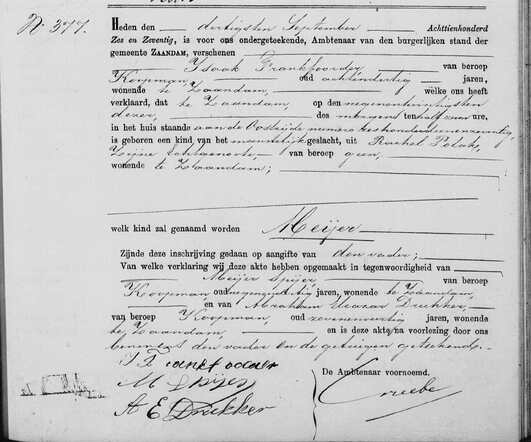 No. 377.
Heden den dertigsten September Achttienhonderd
Zes en Zeventig, is voor ons ondergeteekende, Ambtenaar van den burgerlijken stand der
gemeente ZAANDAM, verschenen
Isaak Frankfoorder van beroep
Koopman, oud achtendertig jaren,
wonende te Zaandam, welke ons heeft
verklaard, dat te Zaandam, op den negenentwintigsten
dezer, des morgens ten half zes ure,
in het huis staande aan de Oostzijde numero zeshonderd zevenenzeventig,
is geboren een kind van het mannelijk geslacht, uit Rachel Polak,
Zijne echtgenoote van beroep geen,
wonende te Zaandam;
welk kind zal genaamd worden Meijer
Zijnde deze inschrijving gedaan op aangifte van den vader;
Van welke verklaring wij deze akte hebben opgemaakt in tegenwoordigheid van
Meijer Spijer van beroep
Koopman, oud jaren, wonende te Zaandam,
en van Abraham Eleazar Drukker
van beroep Koopman, oud zevenenveertig jaren, wonende
te Zaandam en is deze akte na voorlezing door ons
benevens den vader en de getuigen geteekend.
I Frankfoorder
M Spijer
A E Drukker
De Ambtenaar voornoemd.